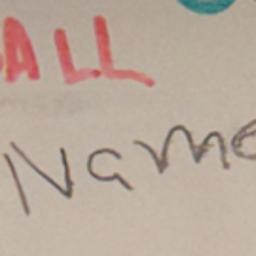 ALL
Name